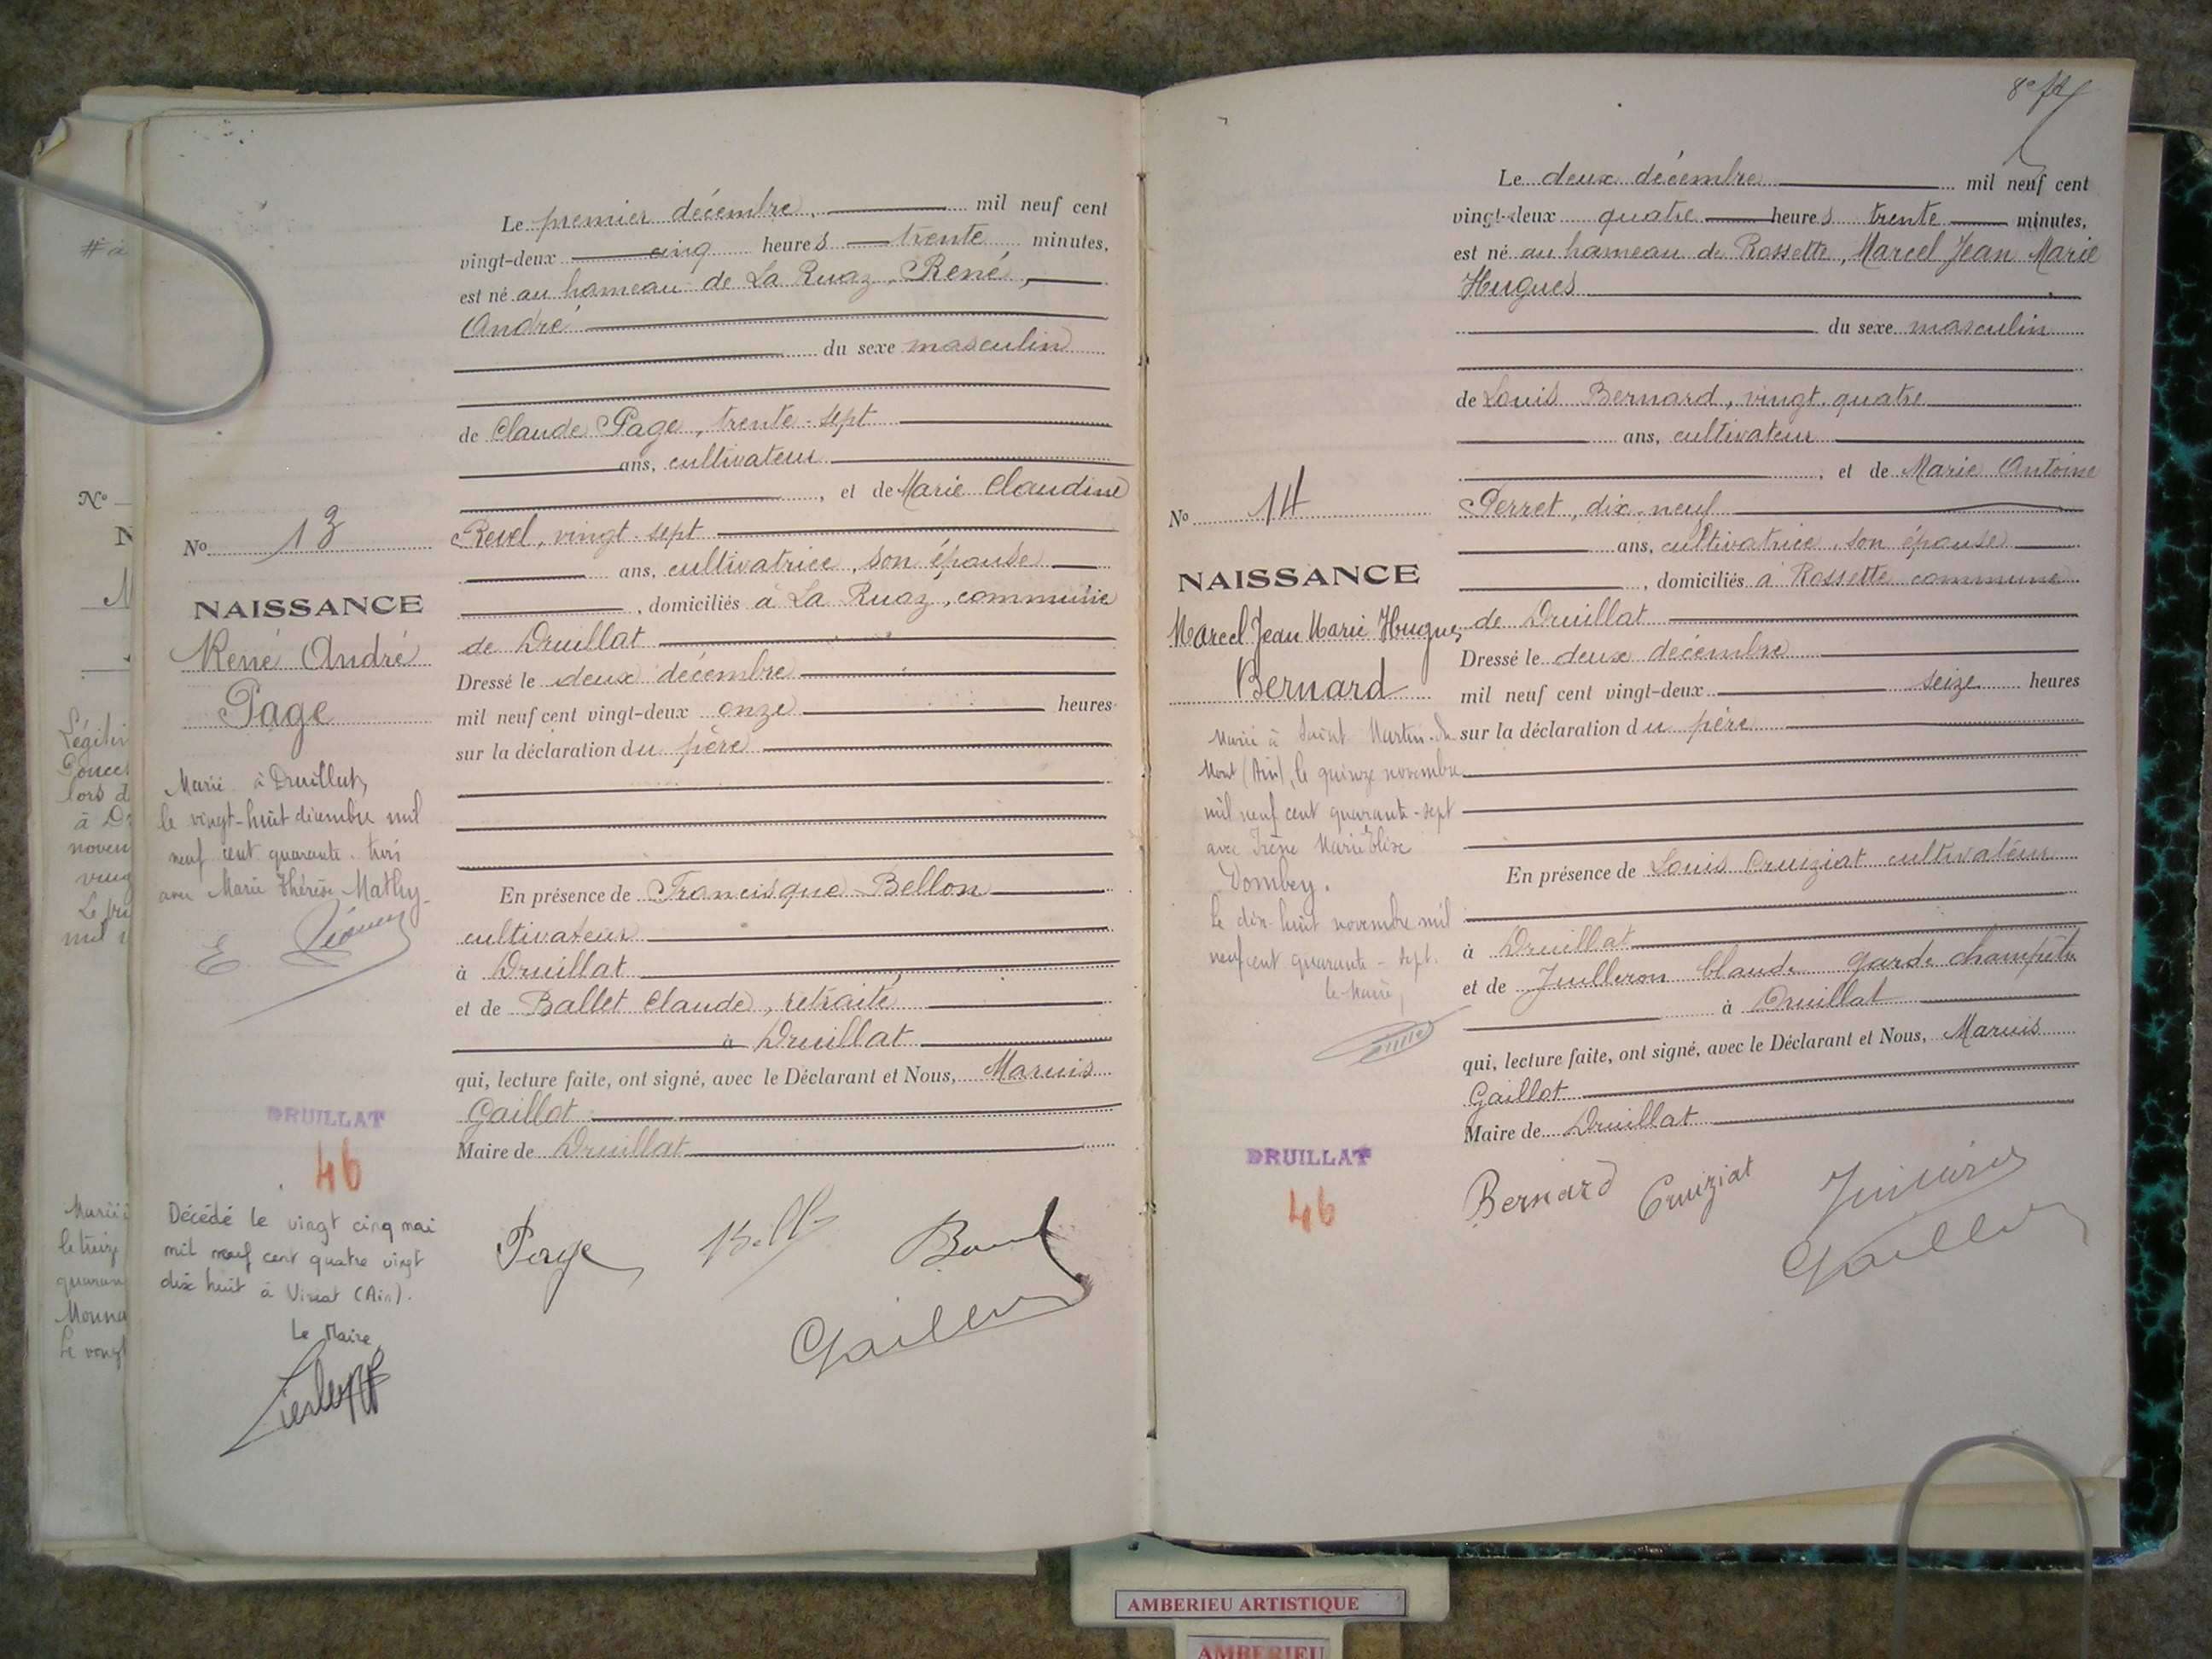 N°
Le premier décembre, mil neuf cent
vingt-deux cinq heures trente minutes,
est né au hameau de La Ruaz, René,
André
du sexe masculin
de Claude Page, trente-sept
ans, cultivateur
, et de Marie Claudine
Revel, vingt-sept
ans, cultivatrice, son épouse
, domiciliés à La Ruaz, commune
de Druillat
Dressé le deux décembre
mil neuf cent vingt-deux onze heures
sur la déclaration du père
En présence de Francisque Bellon
cultivateur
à Druillat
et de Ballet Claude, retraité
à Druillat
qui, lecture faite, ont signé, avec le Déclarant et Nous, Marius
Gaillot
Maire de Druillat
Page
No 13
NAISSANCE
René André
Page
Marié à Druillat,
le vingt-huit décembre mil
neuf cent quarante-trois
avec Marie Thérèse Mathy
DRUILLAT
46
Décédé le vingt cinq mai
mil neuf cent quatre vingt
dix huit à Viriat (Ain).
Le Maire,
Le deux décembre mil neuf cent
vingt-deux quatre heures trente minutes,
est né au hameau de Rossette, Marcel Jean Marie
Hugues
du sexe masculin
de Louis Bernard, vingt-quatre
ans, cultivateur
, et de Marie Antoine
Perret, dix-neuf
ans, cultivatrice, son épouse
, domiciliés à Rossette commune
de Druillat
Dressé le deux décembre
mil neuf cent vingt-deux seize heures
sur la déclaration du père
En présence de Louis Cruiziat cultivateur
à Druillat
et de Juilleron Claude garde champêtre
à Druillat
qui, lecture faite, ont signé, avec le Déclarant et Nous, Marius
Gaillot
Maire de Druillat
Bernard Cruiziat
No 14
NAISSANCE
Marcel Jean Marie Hugues
Bernard
Marié à Saint Martin-du
Mont (Ain), le quinze novembre
mil neuf cent quarante-sept
avec Irène Marie Elise
Dombey.
Le dix-huit novembre mil
neuf cent quarante-sept.
le Maire,
DRUILLAT
46
AMBERIEU ARTISTIQUE
AMBERIEU